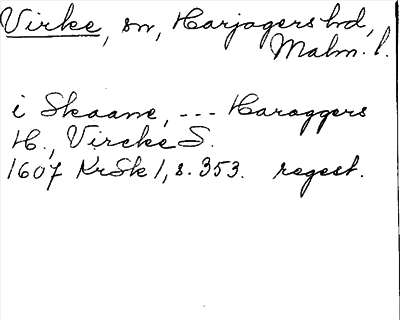 Virke, sn, Harjagers hd,
Malm. l.
i Skaane, --- Haraggers
H., Vircke S.
1607 KrSk 1, s. 353. regest.